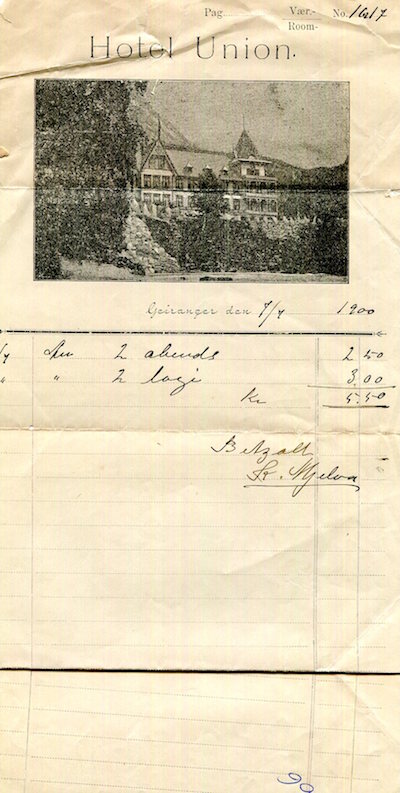 Pag. Vær.- No. 16/17
Room-
Hotel Union.
Geiranger den 7/7 1900
An 2 abends 2 50
" " 2 logi 3.00
Kr 5.50
Betzalt
K. Mjelva
90